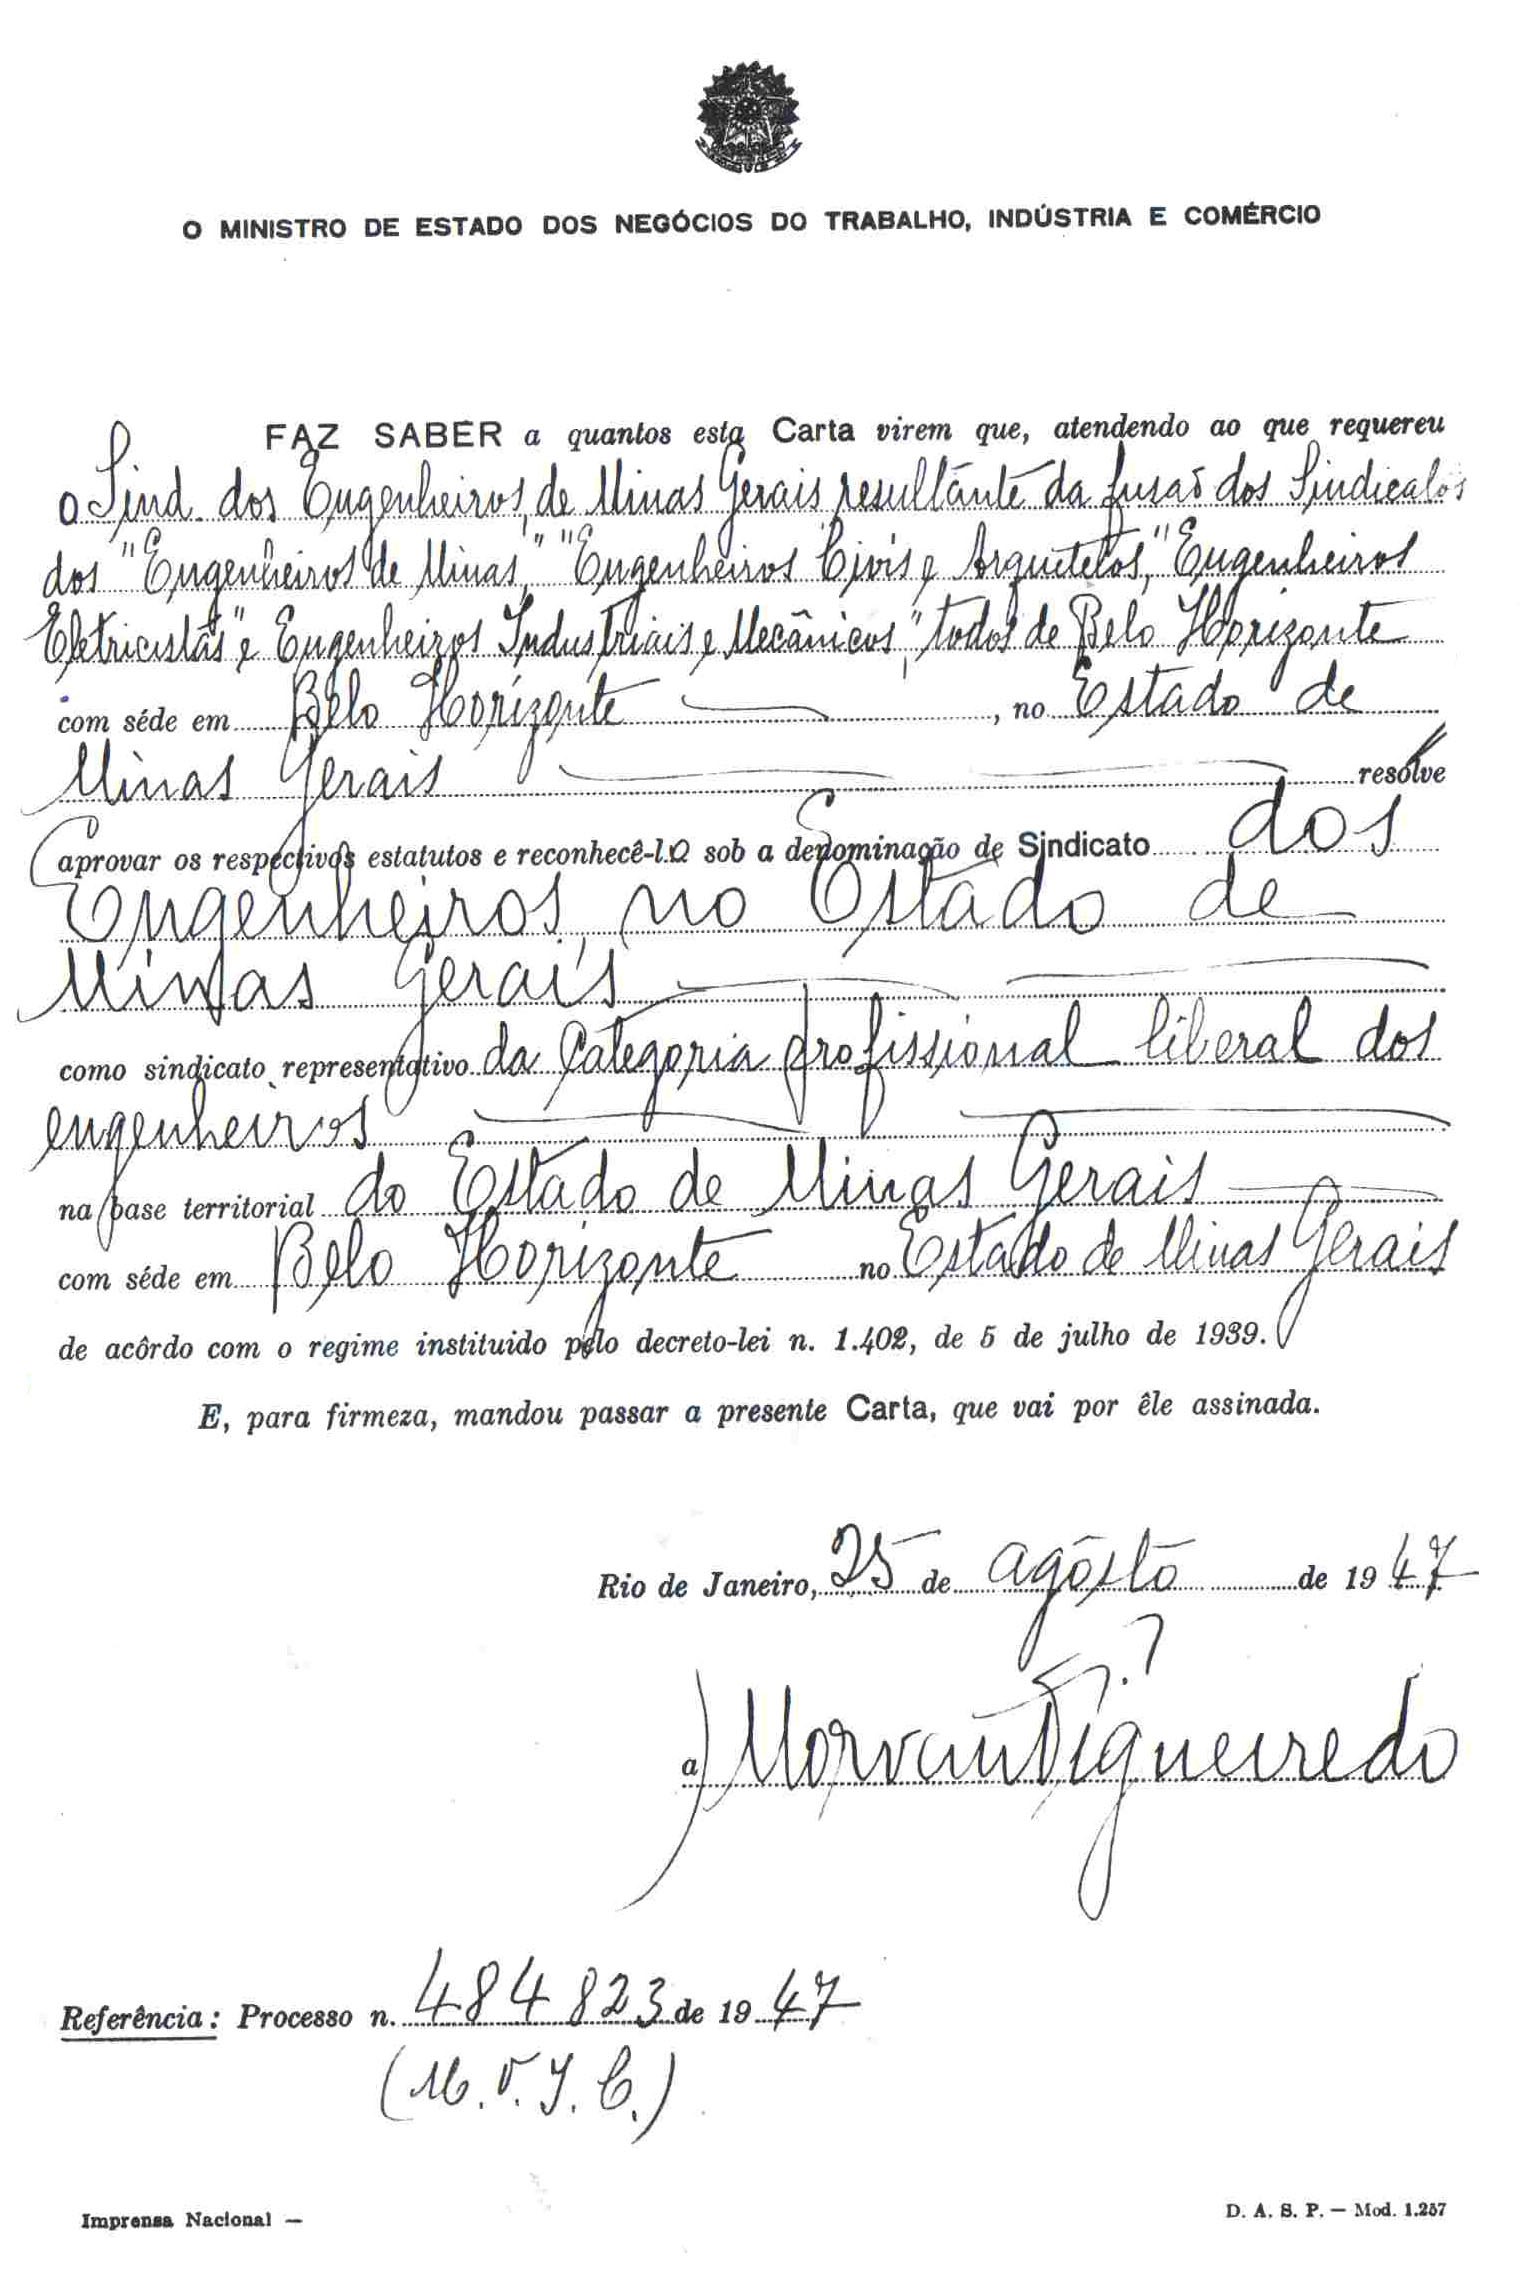 O MINISTRO DE ESTADO DOS NEGÓCIOS DO TRABALHO, INDÚSTRIA E COMÉRCIO
FAZ SABER a quantos esta Carta virem que, atendendo ao que requereu
o Sind. dos Engenheiros de Minas Gerais resultante da fusão dos Sindicatos
dos "Engenheiros de Minas," "Engenheiros Civis e Arquitetos," "Engenheiros
Eletricistas" e Engenheiros Industriais e Mecânicos," todos de Belo Horizonte
com séde em Belo Horizonte, no Estado de
Minas Gerais resolve
aprovar os respectivos estatutos e reconhecê-l.o sob a denominação de Sindicato dos
Engenheiros no Estado de
Minas Gerais
como sindicato representativo da categoria profissional liberal dos
engenheiros
na base territorial do Estado de Minas Gerais
com séde em Belo Horizonte no Estado de Minas Gerais
de acôrdo com o regime instituido pelo decreto-lei n. 1.402, de 5 de julho de 1939.
E, para firmeza, mandou passar a presente Carta, que vai por êle assinada.
Rio de Janeiro, 25 de agôsto de 1947
a) Morvan Figueiredo
Referência: Processo n. 484823 de 1947
(M.T.I.C.)
Imprensa Nacional —
D. A. S. P. — Mod. 1.257